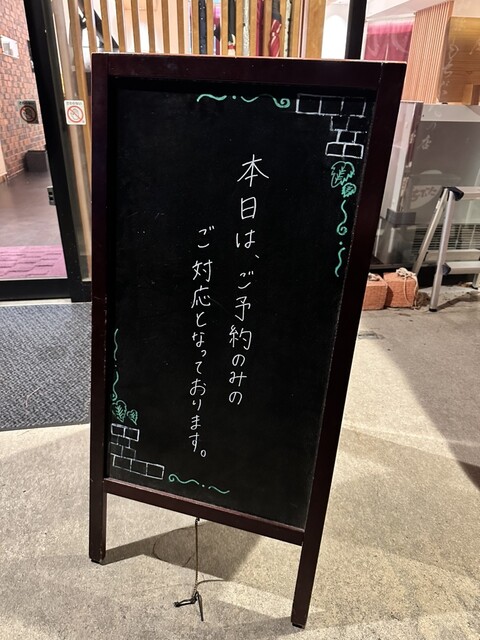 本日は、ご予約のみの
ご対応となっております。